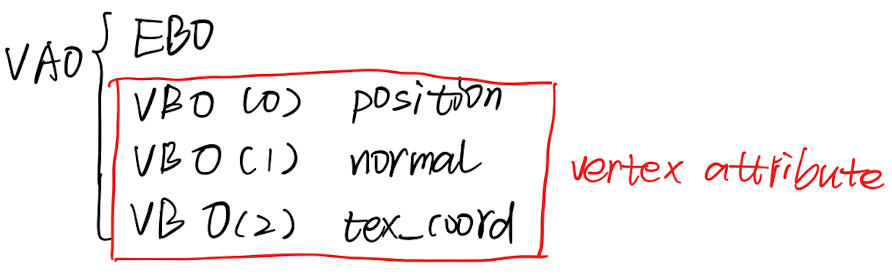 VAO
EBO
VBO (0) position
VBO (1) normal
VBO(2) tex_coord
vertex attribute